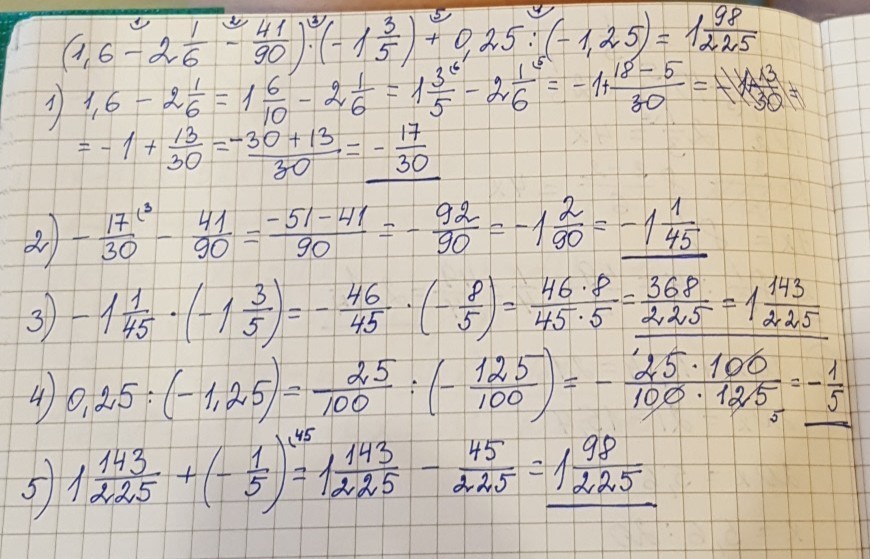 (1,6 - 2 1/6 - 41/90) · (-1 3/5) + 0,25 : (-1,25) = 1 98/225
1) 1,6 - 2 1/6 = 1 6/10 - 2 1/6 = 1 3/5 - 2 1/6 = -1+ 18-5/30 =
= -1 + 13/30 = -30+13/30 = - 17/30
2) - 17/30 - 41/90 = -51-41/90 = - 92/90 = -1 2/90 = -1 1/45
3) -1 1/45 · (-1 3/5) = - 46/45 · (- 8/5) = 46·8/45·5 = 368/225 = 1 143/225
4) 0,25 : (-1,25) = 25/100 : (- 125/100) = - 25·100/100·125 = - 1/5
5) 1 143/225 + (- 1/5) = 1 143/225 - 45/225 = 1 98/225